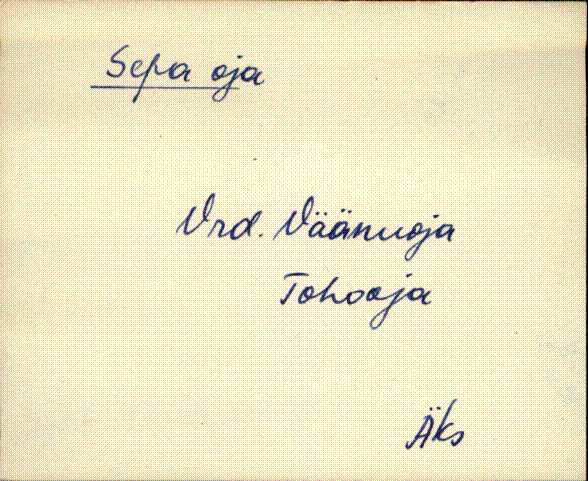 Sepa oja
Vrd. Väänuoja
Tohooja
Äks